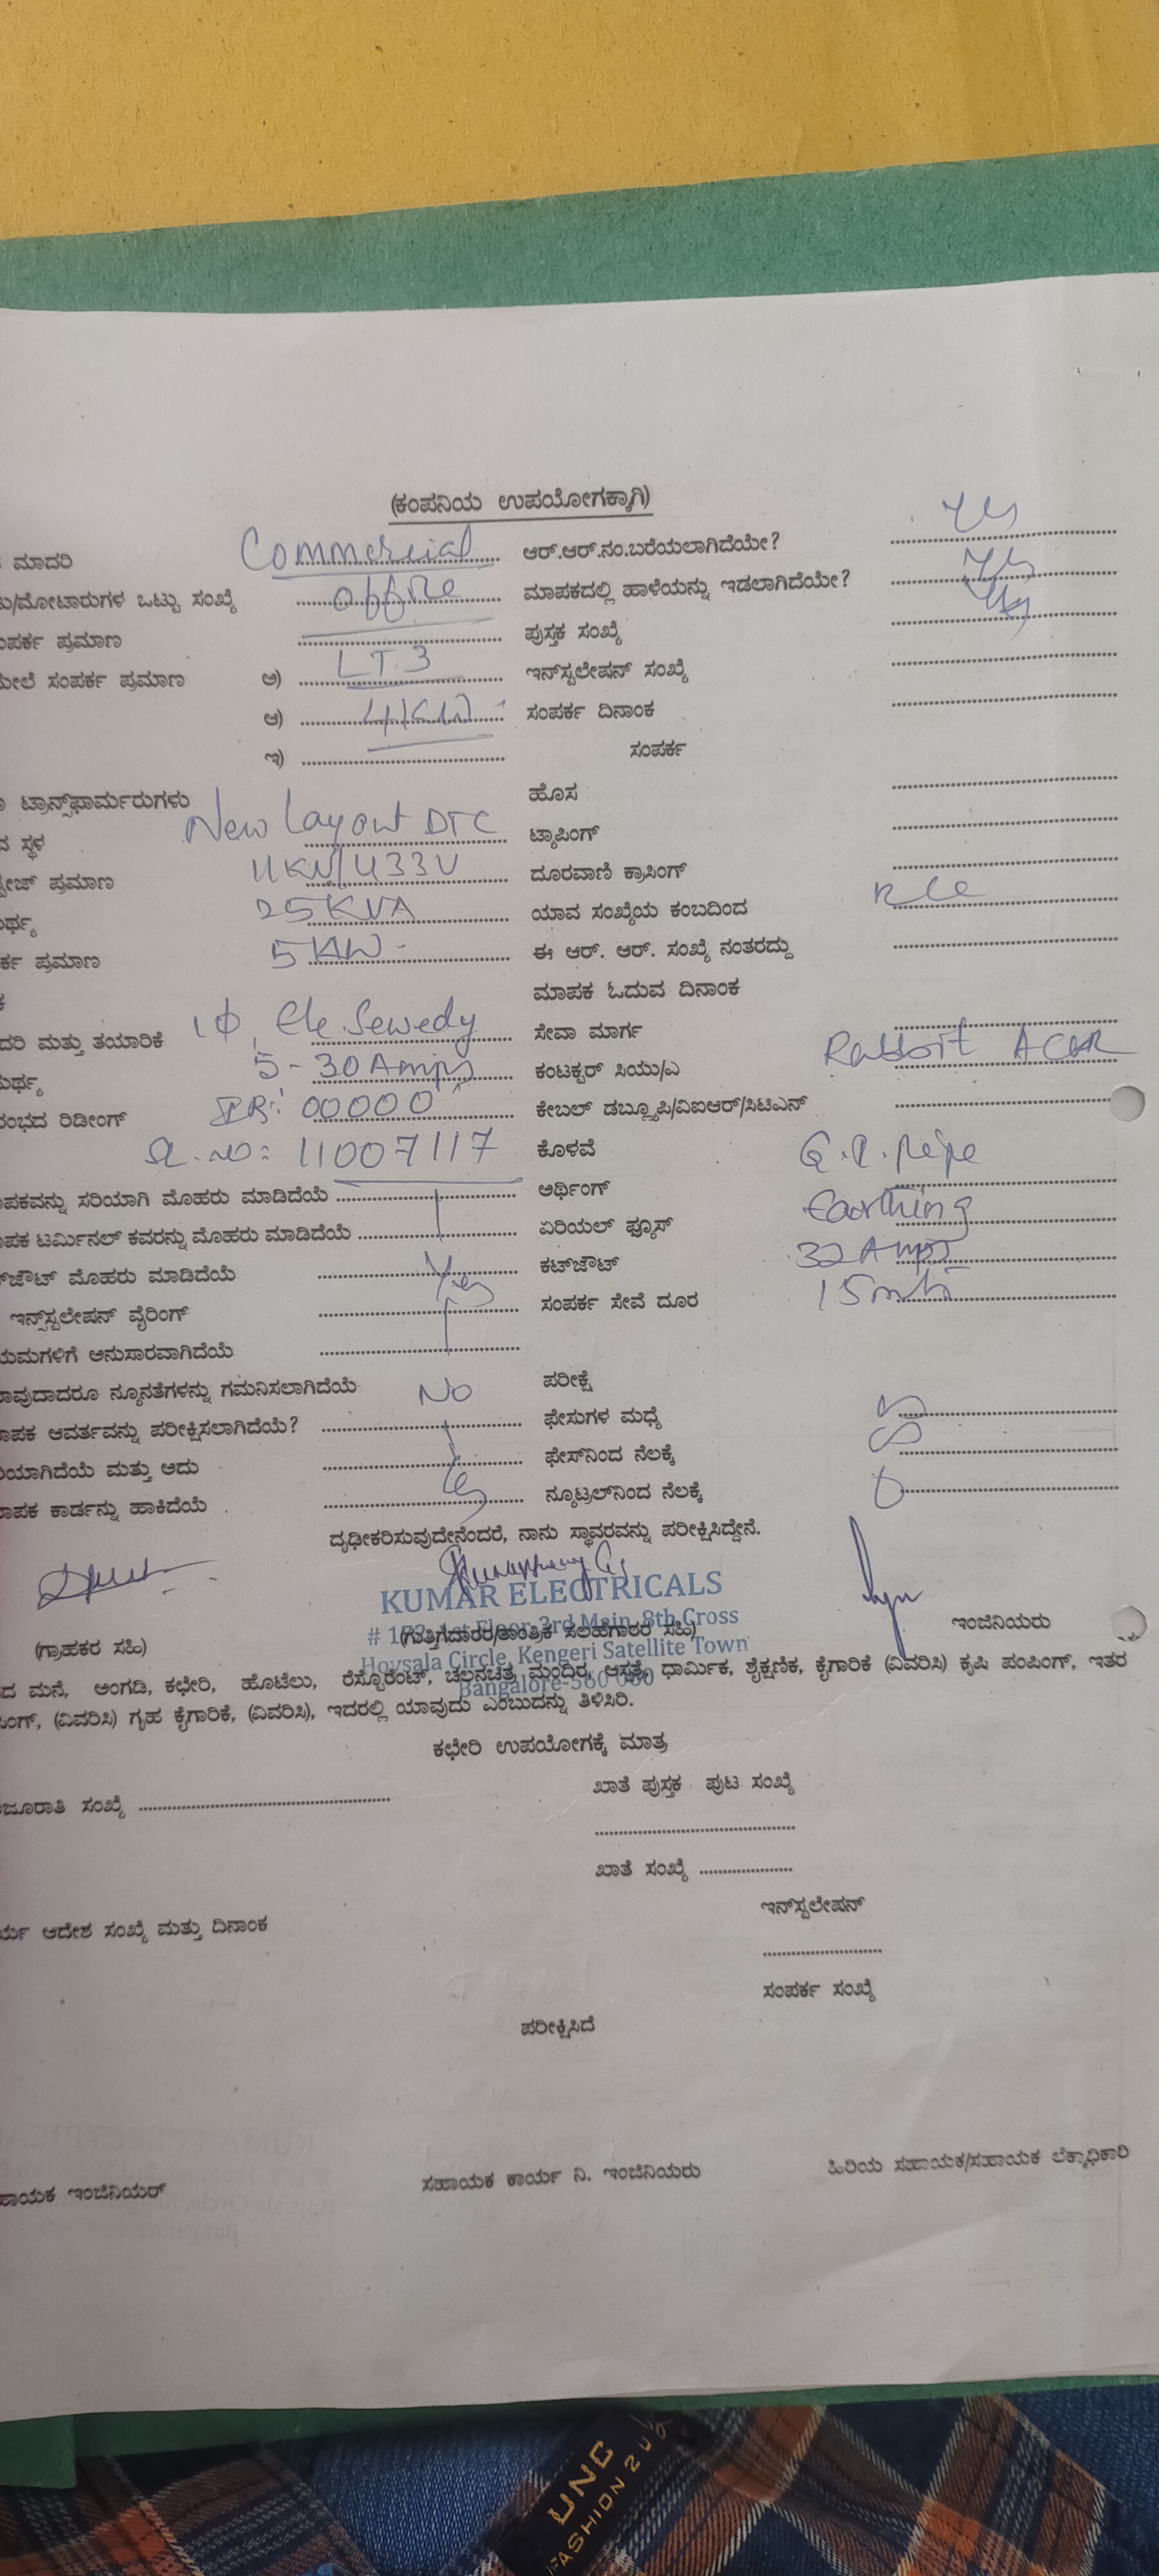 (ಕಂಪನಿಯ ಉಪಯೋಗಕ್ಕಾಗಿ)
ಮಾದರಿ Commercial ಆರ್.ಆರ್.ನಂ.ಬರೆಯಲಾಗಿದೆಯೇ? Yes
/ಮೋಟಾರುಗಳ ಒಟ್ಟು ಸಂಖ್ಯೆ office ಮಾಪಕದಲ್ಲಿ ಹಾಳೆಯನ್ನು ಇಡಲಾಗಿದೆಯೇ? Yes
ಪ್ರಮಾಣ ಪುಸ್ತಕ ಸಂಖ್ಯೆ Yes
ಮೇಲೆ ಸಂಪರ್ಕ ಪ್ರಮಾಣ ಅ) LT.3 ಇನ್‌ಸ್ಟಲೇಷನ್ ಸಂಖ್ಯೆ
ಆ) 4KW ಸಂಪರ್ಕ ದಿನಾಂಕ
ಇ) ಸಂಪರ್ಕ
ಟ್ರಾನ್ಸ್‌ಫಾರ್ಮರುಗಳು ಹೊಸ
ಸ್ಥಳ New Layout DTC ಟ್ಯಾಪಿಂಗ್
ಪ್ರಮಾಣ 11KV/433V ದೂರವಾಣಿ ಕ್ರಾಸಿಂಗ್
25KVA ಯಾವ ಸಂಖ್ಯೆಯ ಕಂಬದಿಂದ
ಪ್ರಮಾಣ 5KW - ಈ ಆರ್. ಆರ್. ಸಂಖ್ಯೆ ನಂತರದ್ದು
ಮಾಪಕ ಓದುವ ದಿನಾಂಕ
ಮತ್ತು ತಯಾರಿಕೆ 1Φ, Ele Sewedy ಸೇವಾ ಮಾರ್ಗ
5-30 Amps ಕಂಟಕ್ಟರ್ ಸಿಯು/ಎ Rabbit ACSR
ರಿಡೀಂಗ್ IR: 00000 ಕೇಬಲ್ ಡಬ್ಲ್ಯೂಪಿ/ವಿಐಆರ್/ಸಿಟಿಎನ್
Sl. no: 11007117 ಕೊಳವೆ G.I. pipe
ಸರಿಯಾಗಿ ಮೊಹರು ಮಾಡಿದೆಯೆ ಅರ್ಥಿಂಗ್ Earthing
ಟರ್ಮಿನಲ್ ಕವರನ್ನು ಮೊಹರು ಮಾಡಿದೆಯೆ ಏರಿಯಲ್ ಫ್ಯೂಸ್ 32 Amps
ಮೊಹರು ಮಾಡಿದೆಯೆ Yes ಕಟ್‌ಜೌಟ್ 15 mts
ಇನ್ಸ್‌ಸ್ಟಲೇಷನ್ ವೈರಿಂಗ್ ಸಂಪರ್ಕ ಸೇವೆ ದೂರ
ಅನುಸಾರವಾಗಿದೆಯೆ
ನ್ಯೂನತೆಗಳನ್ನು ಗಮನಿಸಲಾಗಿದೆಯೆ No ಪರೀಕ್ಷೆ
ಆವರ್ತವನ್ನು ಪರೀಕ್ಷಿಸಲಾಗಿದೆಯೆ? ಫೇಸುಗಳ ಮಧ್ಯೆ
ಮತ್ತು ಅದು ಫೇಸ್‌ನಿಂದ ನೆಲಕ್ಕೆ
ಕಾರ್ಡನ್ನು ಹಾಕಿದೆಯೆ Yes ನ್ಯೂಟ್ರಲ್‌ನಿಂದ ನೆಲಕ್ಕೆ
ದೃಢೀಕರಿಸುವುದೇನೆಂದರೆ, ನಾನು ಸ್ಥಾವರವನ್ನು ಪರೀಕ್ಷಿಸಿದ್ದೇನೆ.
KUMAR ELECTRICALS
1st Floor, 3rd Main, 8th Cross
(ಗ್ರಾಹಕರ ಸಹಿ) (ಗುತ್ತಿಗೆದಾರರ/ತಾಂತ್ರಿಕ ಸಲಹೆಗಾರರ ಸಹಿ) ಇಂಜಿನಿಯರು
Hoysala Circle, Kengeri Satellite Town
Bangalore-560 060
ಮನೆ, ಅಂಗಡಿ, ಕಛೇರಿ, ಹೊಟೆಲು, ರೆಸ್ಟೊರೆಂಟ್, ಚಲನಚಿತ್ರ ಮಂದಿರ, ಆಸ್ಪತ್ರೆ, ಧಾರ್ಮಿಕ, ಶೈಕ್ಷಣಿಕ, ಕೈಗಾರಿಕೆ (ವಿವರಿಸಿ) ಕೃಷಿ ಪಂಪಿಂಗ್, ಇತರ
(ವಿವರಿಸಿ) ಗೃಹ ಕೈಗಾರಿಕೆ, (ವಿವರಿಸಿ), ಇದರಲ್ಲಿ ಯಾವುದು ಎಂಬುದನ್ನು ತಿಳಿಸಿರಿ.
ಕಛೇರಿ ಉಪಯೋಗಕ್ಕೆ ಮಾತ್ರ
ಖಾತೆ ಪುಸ್ತಕ ಪುಟ ಸಂಖ್ಯೆ
ಸಂಖ್ಯೆ
ಖಾತೆ ಸಂಖ್ಯೆ
ಇನ್‌ಸ್ಟಲೇಷನ್
ಆದೇಶ ಸಂಖ್ಯೆ ಮತ್ತು ದಿನಾಂಕ
ಸಂಪರ್ಕ ಸಂಖ್ಯೆ
ಪರೀಕ್ಷಿಸಿದೆ
ಇಂಜಿನಿಯರ್ ಸಹಾಯಕ ಕಾರ್ಯ ನಿ. ಇಂಜಿನಿಯರು ಹಿರಿಯ ಸಹಾಯಕ/ಸಹಾಯಕ ಲೆಕ್ಕಾಧಿಕಾರಿ
UNC
FASHION